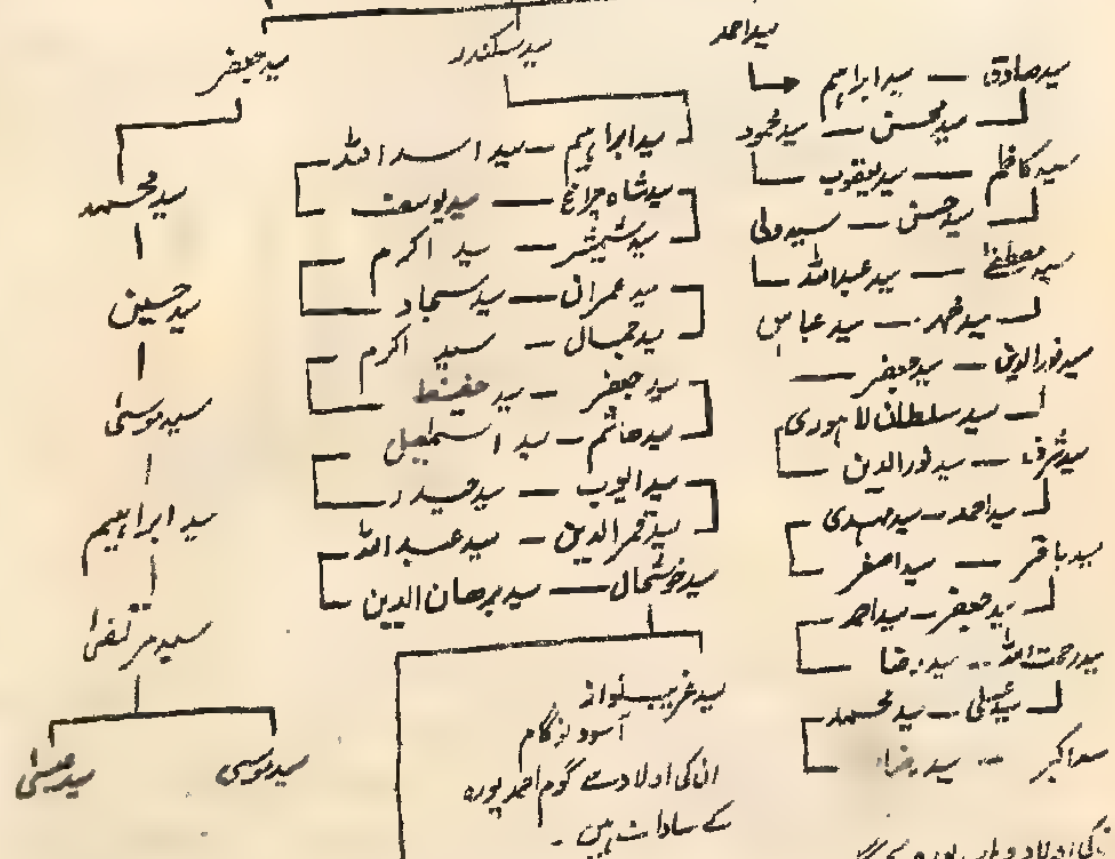 سید احمد
سید صادق — سید ابراہیم
سید محسن — سید محمود
سید کاظم — سید یعقوب
سید حسن — سید ولی
سید مصطفےٰ — سید عبداللہ
سید عباس
سید نورالدین — سید جعفر —
سید سلطان لاہوری
سید شرف — سید نورالدین
سید احمد — سید مہدی
سید باقر — سید اصغر
سید جعفر — سید احمد
سید رحمت اللہ — سید رضا
سید علی — سید محمد
سید اکبر — سید
سید سکندر
سید ابراہیم — سید اسد اللہ
سید شاہ چراغ — سید یوسف
سید شمشیر — سید اکرم
سید عمران — سید سجاد
سید جمال — سید اکرم
سید جعفر — سید حفیظ
سید ہاشم — سید اسمٰعیل
سید ایوب — سید حیدر
سید قمرالدین — سید عبداللہ
سید خوشحال — سید برھان الدین
سید غریب
آسودہ
ان کی اولاد سے گوم احمد پورہ
کے سادات ہیں ۔
سید جعفر
سید محمد
سید حسین
سید موسیٰ
سید ابراہیم
سید مرتضیٰ
سید موسی
سید عیسیٰ